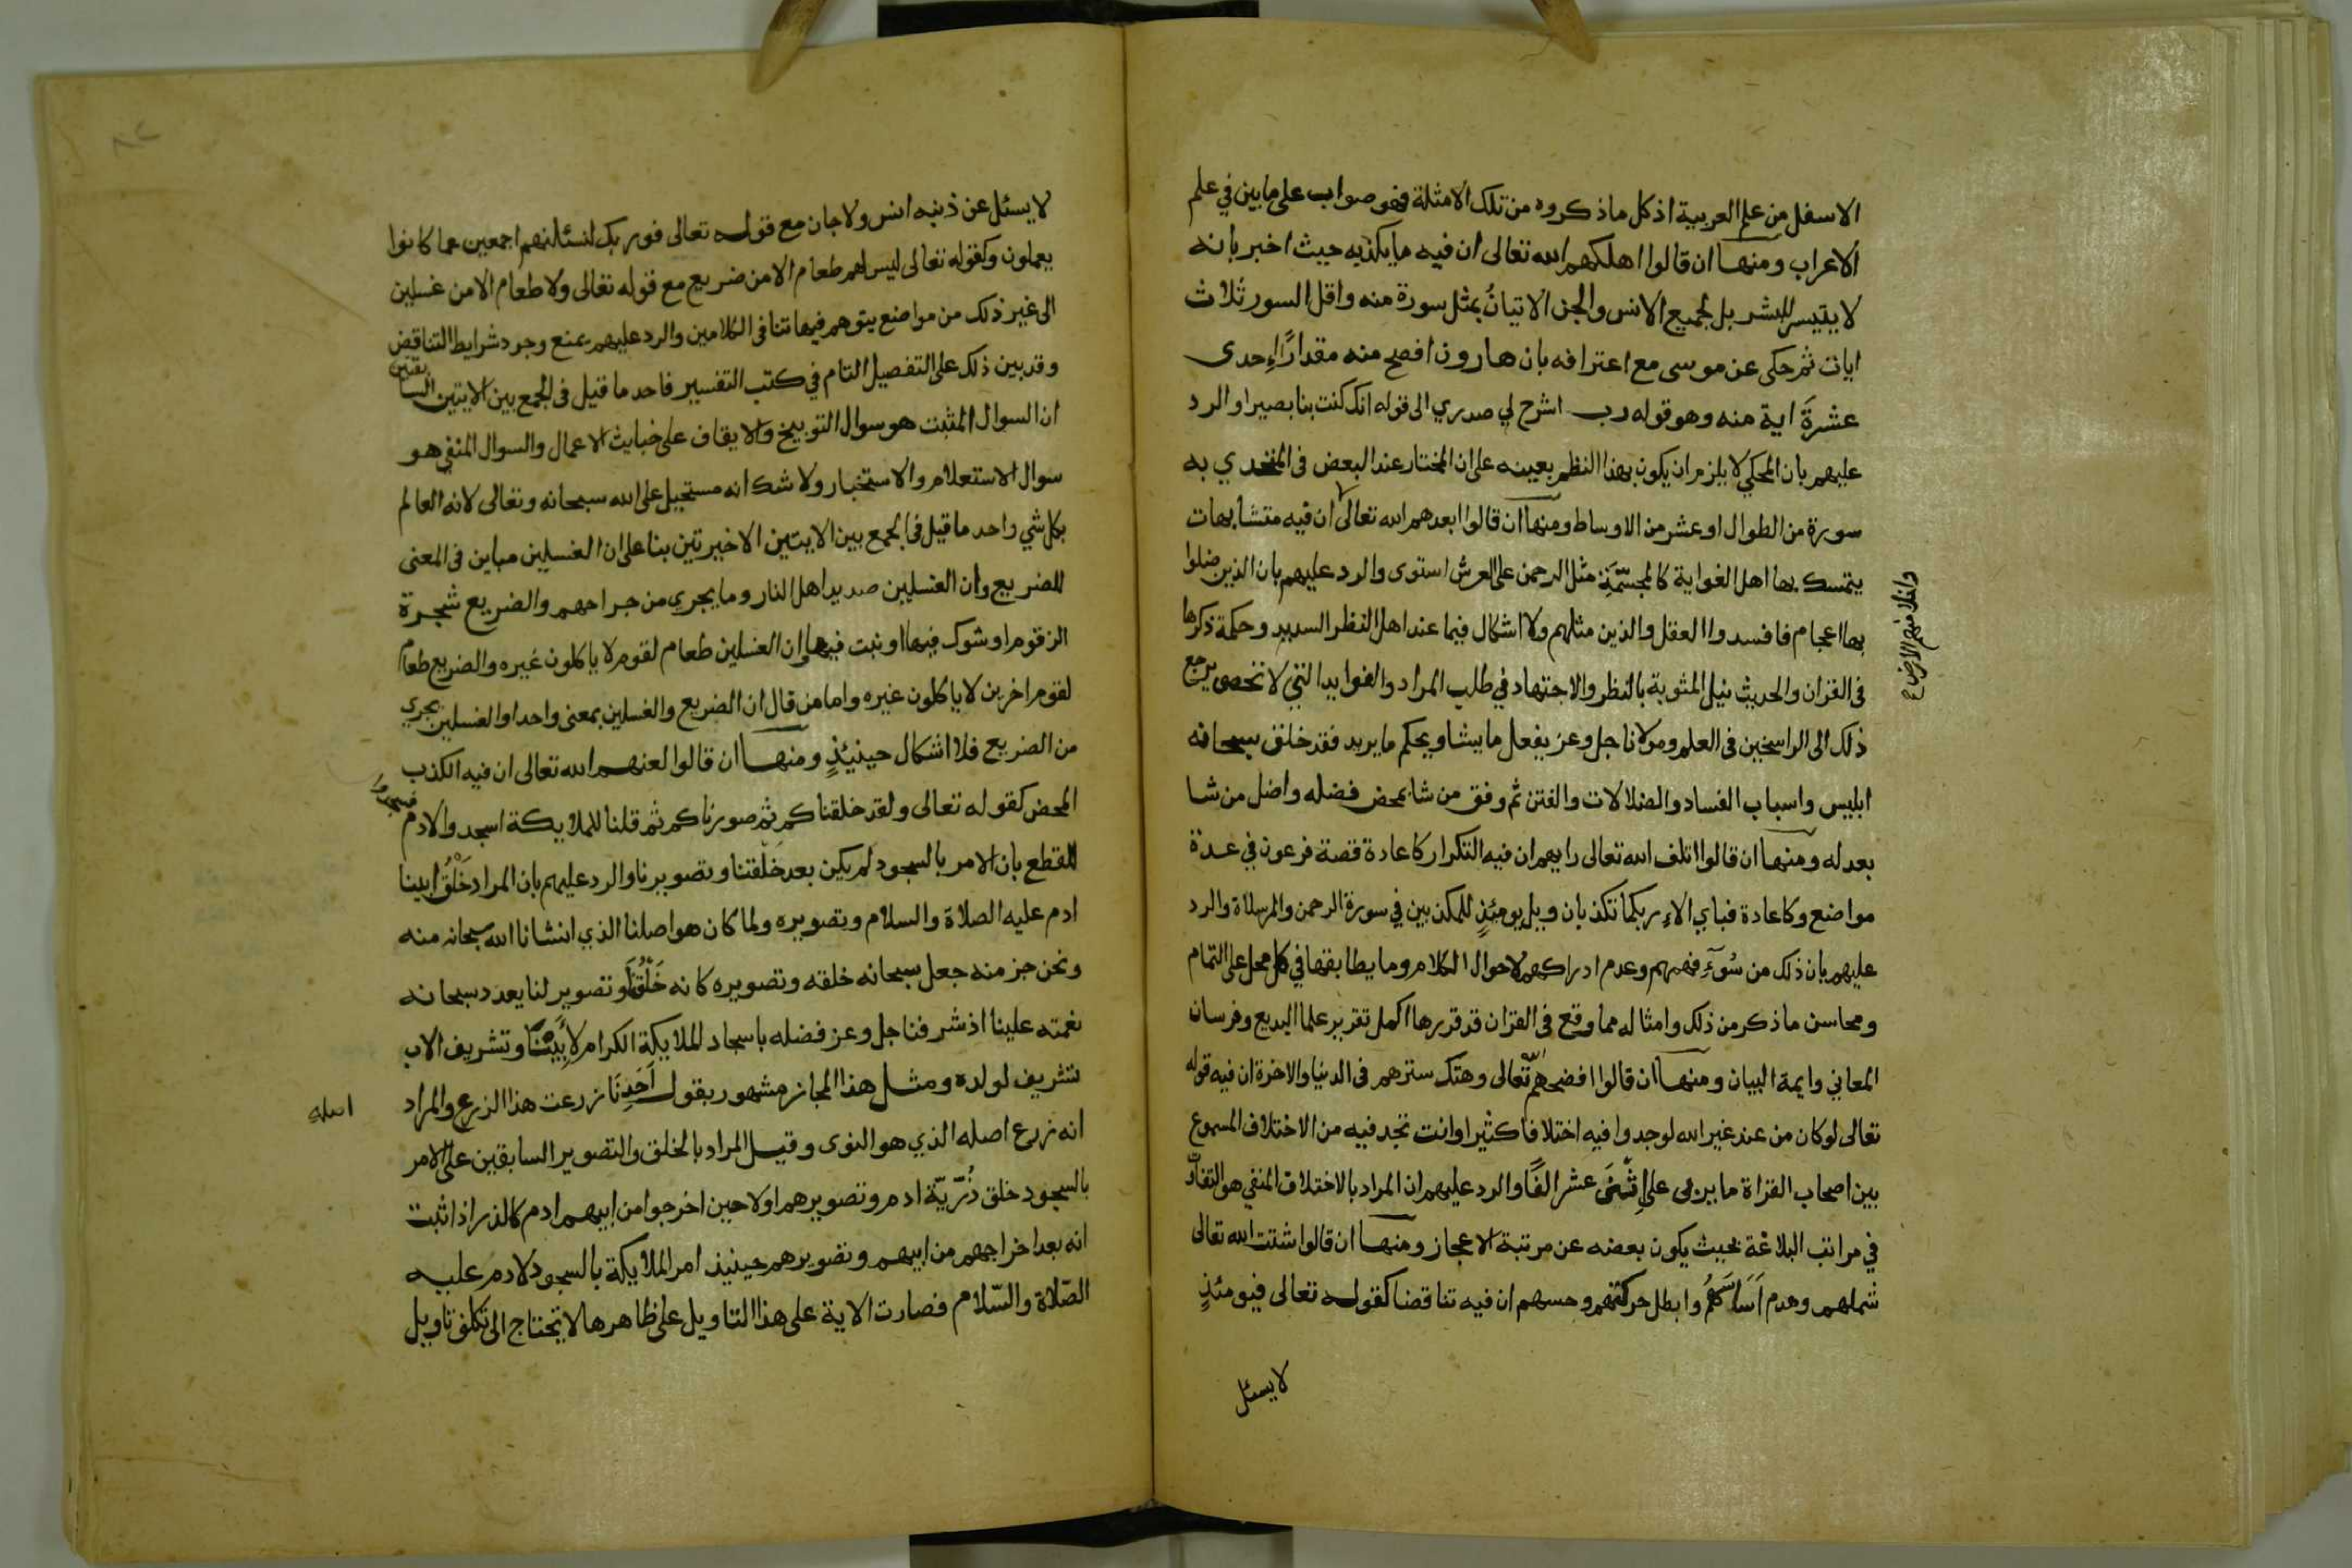 الاسفل من علم العربية اذ كل ما ذكروه من تلك الامثلة فهو صواب على ما بين في علم
الاعراب ومنها ان قالوا اهلكهم الله تعالى ان فيه ما يكذبه حيث اخبر بانه
لا يتيسر للبشر بل لجميع الانس والجن الاتيانُ بمثل سورة منه واقل السور ثلاث
ايات ثم حكى عن موسى مع اعترافه بان هارون افصح منه مقدارًا إحدى
عشرةَ اية منه وهو قوله رب اشرح لي صدري الى قوله انك كنت بنا بصيرا والرد
عليهم بان المحكي لا يلزم ان يكون بهذا النظم بعينه على ان المختار عند البعض في المتحدي به
سورة من الطوال او عشر من الاوساط ومنها ان قالوا ابعدهم الله تعالى ان فيه متشابهات
يتمسك بها اهل الغواية كالمجسّمَةِ مثل الرحمن على العرش استوى والرد عليهم بان الذين ضلوا
بها اعجام فافسدوا العقل والذين مثلهم ولا اشكال فيها عند اهل النظر السديد وحكمة ذكرها
في القران والحديث نيل المثوبة بالنظر والاجتهاد في طلب المراد والفوايد التي لا تحصى يرجع
ذلك الى الراسخين في العلم ومولانا جل وعز يفعل ما يشا ويحكم ما يريد فقد خلق سبحانه
ابليس واسباب الفساد والضلالات والفتن ثم وفق من شا بمحض فضله واضل من شا
بعدله ومنها ان قالوا اتلف الله تعالى رايهم ان فيه التكرار كاعادة قصة فرعون في عدة
مواضع وكاعادة فباي الاءِ ربكما تكذبان وويل يومئذٍ للمكذبين في سورة الرحمن والمرسلاة والرد
عليهم بان ذلك من سُوّءِ فهمهم وعدم ادراكهم لاحوال الكلام وما يطابقها في كل محل على التمام
ومحاسن ما ذكر من ذلك وامثاله مما وقع في القران قد قررها اكمل تقرير علما البديع وفرسان
المعاني وايمة البيان ومنها ان قالوا افضحهم تعالى وهتك سترهم في الدنيا والاخرة ان فيه قوله
تعالى لو كان من عند غير الله لوجدوا فيه اختلافا كثيرا وانت تجد فيه من الاختلاف المسموع
بين اصحاب القراة ما يربى على اثنى عشر الفًا والرد عليهم ان المراد بالاختلاف المنفي هو التفاوت
في مراتب البلاغة بحيث يكون بعضه عن مرتبة الاعجاز ومنها ان قالوا شتت الله تعالى
شملهم وهدم اَسَاسَهُم وابطل حركتهم وحسهم ان فيه تناقضا كقوله تعالى فيومئذٍ
لا يسئل
لا يسئل عن ذنبه انس ولا جان مع قوله تعالى فوربك لنسئلنهم اجمعين عما كانوا
يعملون وكقوله تعالى ليس لهم طعام الا من ضريع مع قوله تعالى ولا طعام الا من غسلين
الى غير ذلك من مواضع يتوهم فيها تنافى الكلامين والرد عليهم بمنع وجود شرايط التناقض
وقد بين ذلك على التفصيل التام في كتب التفسير فاحد ما قيل في الجمع بين الايتين السابقتين
ان السوال المثبت هو سوال التوبيخ والايقاف على خبايث الاعمال والسوال المنفي هو
سوال الاستعلام والاستخبار ولا شك انه مستحيل على الله سبحانه وتعالى لانه العالم
بكل شي واحد ما قيل في الجمع بين الايتين الاخيرتين بنا على ان الغسلين مباين في المعنى
للضريع وان الغسلين صديد اهل النار وما يجري من جراحهم والضريع شجرة
الزقوم او شوك فيها او نبت فيها وان الغسلين طعام لقوم لا ياكلون غيره والضريع طعام
لقوم اخرين لا ياكلون غيره واما من قال ان الضريع والغسلين بمعنى واحد او الغسلين يجري
من الضريع فلا اشكال حينئذٍ ومنها ان قالوا لعنهم الله تعالى ان فيه الكذب
المحض كقوله تعالى ولقد خلقناكم ثم صورناكم ثم قلنا للملايكة اسجدوا لادم فسجدوا
للقطع بان الامر بالسجود لم يكن بعد خلقتنا وتصويرنا والرد عليهم بان المراد خَلْقُ ابينا
ادم عليه الصلاة والسلام وتصويره ولما كان هو اصلنا الذي انشانا الله سبحانه منه
ونحن جز منه جعل سبحانه خلقه وتصويره كانه خَلْقٌ لَنَا وتصوير لنا يعدد سبحانه
نعمته علينا اذ شرفنا جل وعز فضله باسجاد الملايكة الكرام لابِيْنَا وتشريف الاب
تشريف لولده ومثل هذا المجاز مشهور بقول اَحَدِنَا زرعت هذا الزرع والمراد
انه زرع اصله الذي هو النوى وقيل المراد بالخلق والتصوير السابقين على الامر
بالسجود خلق ذُرّيّة ادم وتصويرهم اولا حين اخرجوا من ابيهم ادم كالذر اذ اثبت
انه بعد اخراجهم من ابيهم وتصويرهم حينيذ امر الملايكة بالسجود لادم عليه
الصّلاة والسّلام فصارت الاية على هذا التاويل على ظاهرها لا تحتاج الى تكلف تاويل